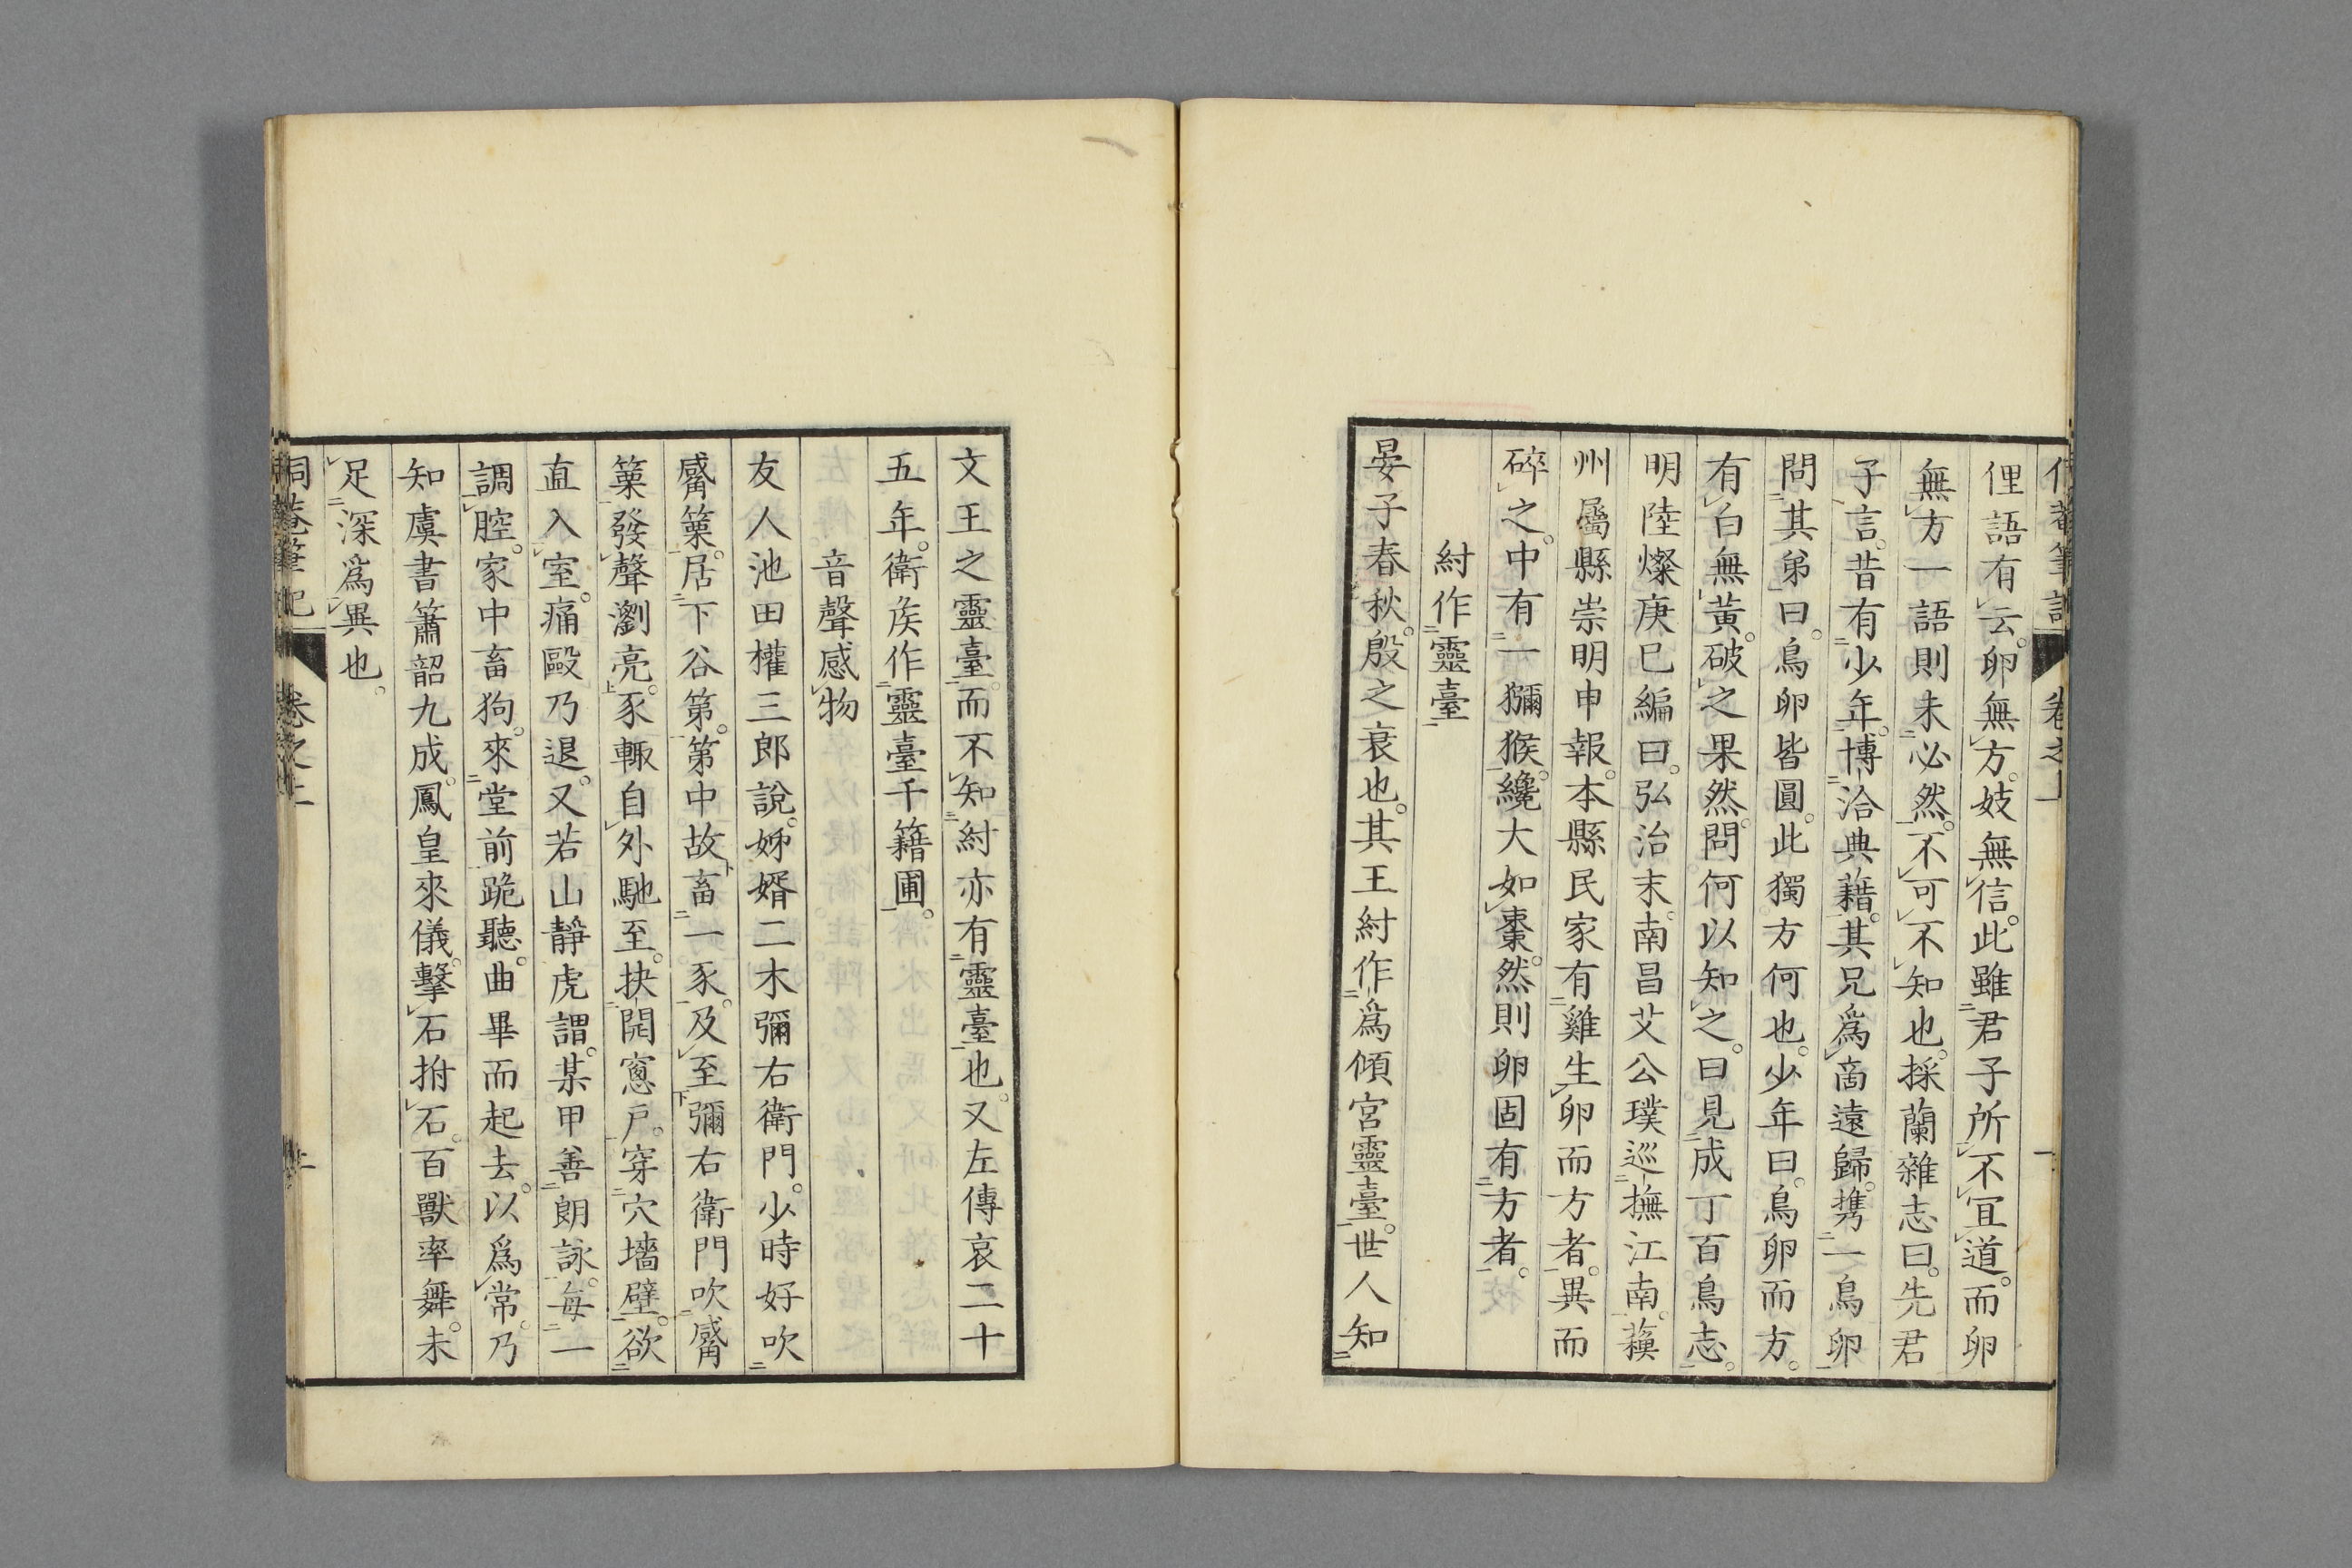 俚語有云。卵無方。妓無信。此雖君子所不宜道。而卵
無方一語則未必然。不可不知也。採蘭雜志曰。先君
子言。昔有少年。博洽典藉。其兄爲啇遠歸。携一鳥卵
問其弟曰。鳥卵皆圓。此獨方何也。少年曰。鳥卵而方。
有白無黃。破之果然。問何以知之。曰見成丁百鳥志。
明陸燦庚巳編曰。弘治末。南昌艾公璞巡撫江南。蘓
州屬縣崇明申報。本縣民家有雞生卵而方者。異而
碎之。中有一獼猴。纔大如棗。然則卵固有方者。
紂作靈臺
晏子春秋。殷之衰也。其王紂作爲傾宮靈臺。世人知
文王之靈臺。而不知紂亦有靈臺也。又左傳哀二十
五年。衛侯作靈臺千籍圃。
音聲感物
友人池田權三郎說。姊婿二木彌右衛門。少時好吹
觱篥。居下谷第。第中故畜一豕。及至彌右衛門吹觱
篥發聲瀏亮。豕輙自外馳至。抉開窻戶。穿穴墻壁。欲
直入室。痛毆乃退。又若山靜虎謂。某甲善朗詠。每一
調腔。家中畜狗。來堂前跪聽。曲畢而起去。以爲常。乃
知虞書簫韶九成。鳳皇來儀。擊石拊石。百獸率舞。未
足深爲異也。
卷之上